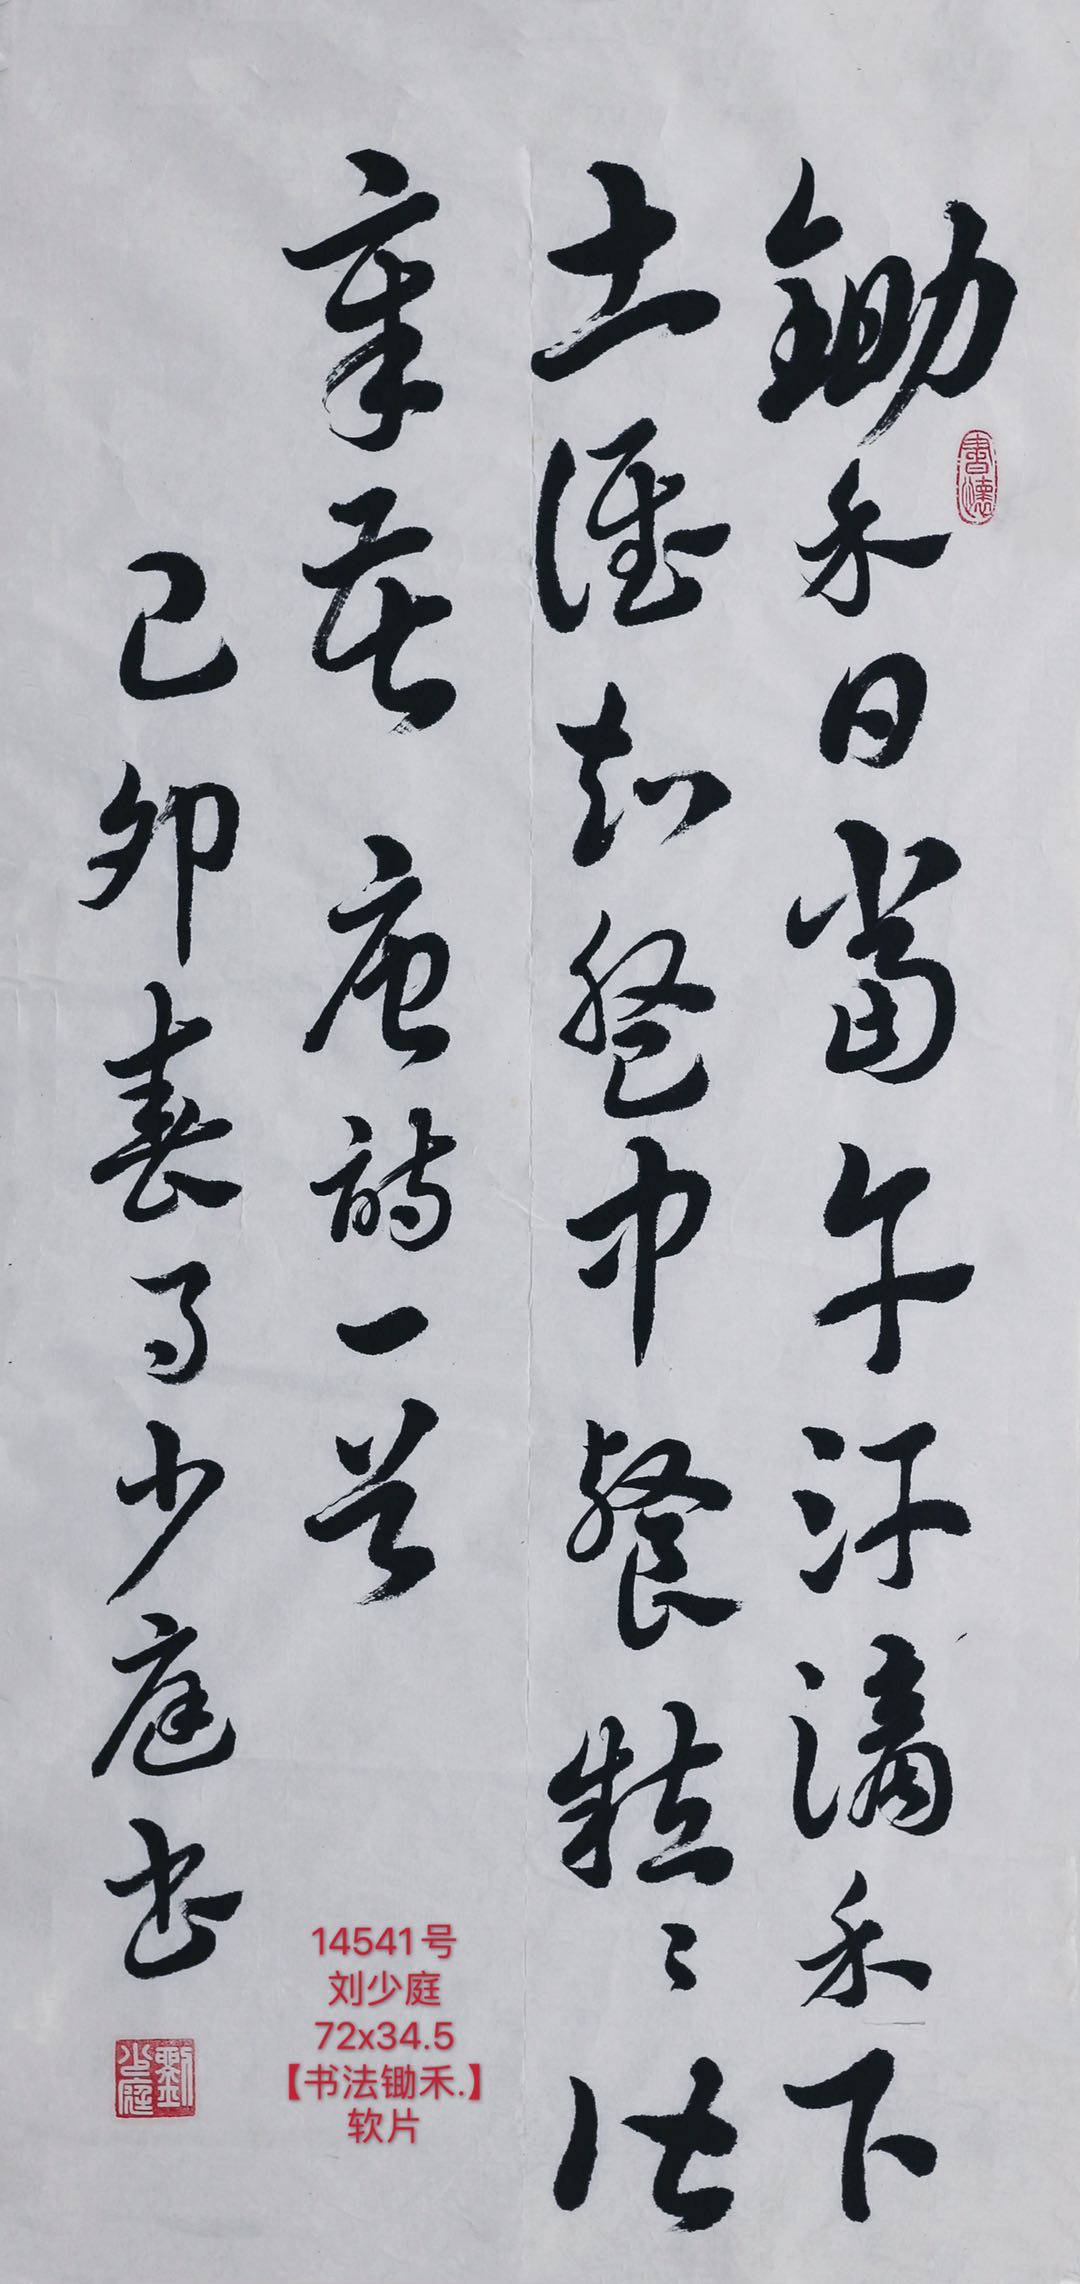 鋤禾日當午汗滴禾下
土誰知盤中餐粒々皆
辛苦 唐詩一首
己卯春月少庭書
書懷
劉少庭
14541号
刘少庭
72x34.5
【书法锄禾.】
软片